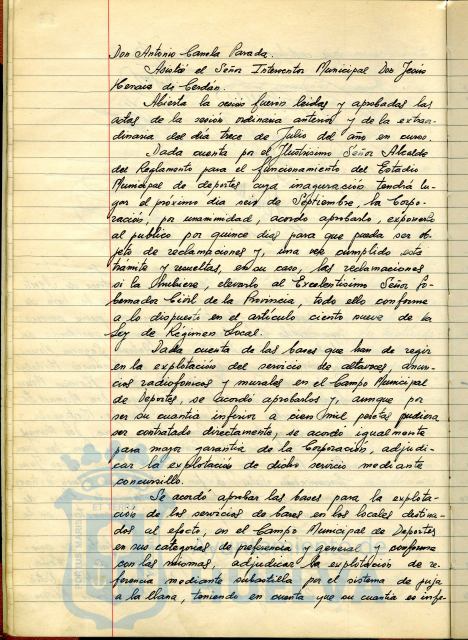 Don Antonio Canela Parada.
Asistió el Señor Interventor Municipal Don Jesús
Henaiz de Cerdán.
Abierta la sesión fueron leidas y aprobadas las
actas de la sesión ordinaria anterior y de la extraor-
dinaria del día trece de Julio del año en curso.
Dada cuenta por el Ilustrisimo Señor Alcalde
del Reglamento para el funcionamiento del Estadio
Municipal de deportes cuya inauguración tendrá lu-
gar el próximo dia seis de Septiembre, la Corpo-
ración, por unanimidad, acordo aprobarlo, exponerlo
al publico por quince dias para que pueda ser ob-
jeto de reclamaciones y, una vez cumplido este
trámite y resueltas, en su caso, las reclamaciones
si la hubiere, elevarlo al Excelentisimo Señor Go-
bernador Civil de la Provincia, todo ello conforme
a lo dispuesto en el artículo ciento nueve de la
Ley de Régimen Local.
Dada cuenta de las bases que han de regir
en la explotación del servicio de altavoces, anun-
cios radiofonicos y murales en el Campo Municipal
de Deportes, se acordó aprobarlos y, aunque por
ser su cuantia inferior a cien mil pesetas pudiera
ser contratado directamente, se acordó igualmente
para mayor garantia de la Corporación, adjudi-
car la explotación de dicho servicio mediante
concursillo.
Se acordó aprobar las bases para la explota-
ción de los servicios de bares en los locales destina-
dos al efecto, en el Campo Municipal de Deportes
en sus categorias de preferencia y general y conforme
con las mismas, adjudicar la explotación de re-
ferencia mediante subastilla por el sistema de puja
a la llana, teniendo en cuenta que su cuantia es infe-